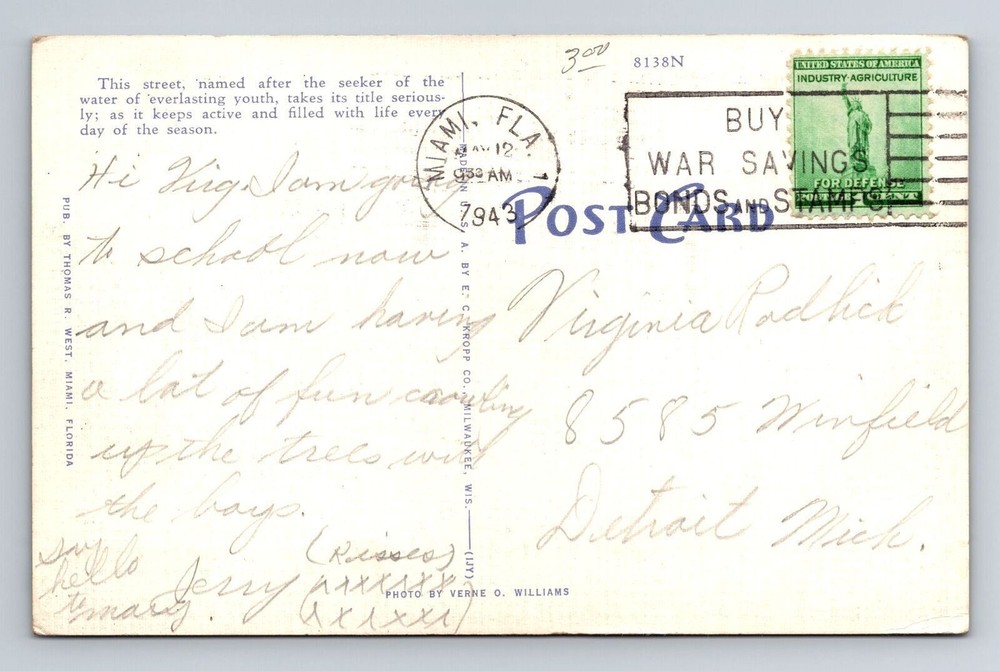 3.00
8138N
This street, named after the seeker of the
water of everlasting youth, takes its title serious-
ly; as it keeps active and filled with life every
day of the season.
MIAMI, FLA. 1
12
930 AM
1943
BUY
WAR SAVINGS
BONDS AND STAMPS
UNITED STATES OF AMERICA
INDUSTRY·AGRICULTURE
FOR DEFENSE
POST CARD
Hi Virg. I am going
to school now
and I am having
a lot of fun crawling
up the trees with
the boys.
Jerry (Kisses)
XXXXXXX
XXXXXX
say
hello
to mary.
Virginia Rodlick
8585 Winfield
Detroit Mich.
PUB. BY THOMAS R. WEST, MIAMI, FLORIDA
MADE IN U. S. A. BY E. C. KROPP CO., MILWAUKEE, WIS. (IJY)
PHOTO BY VERNE O. WILLIAMS